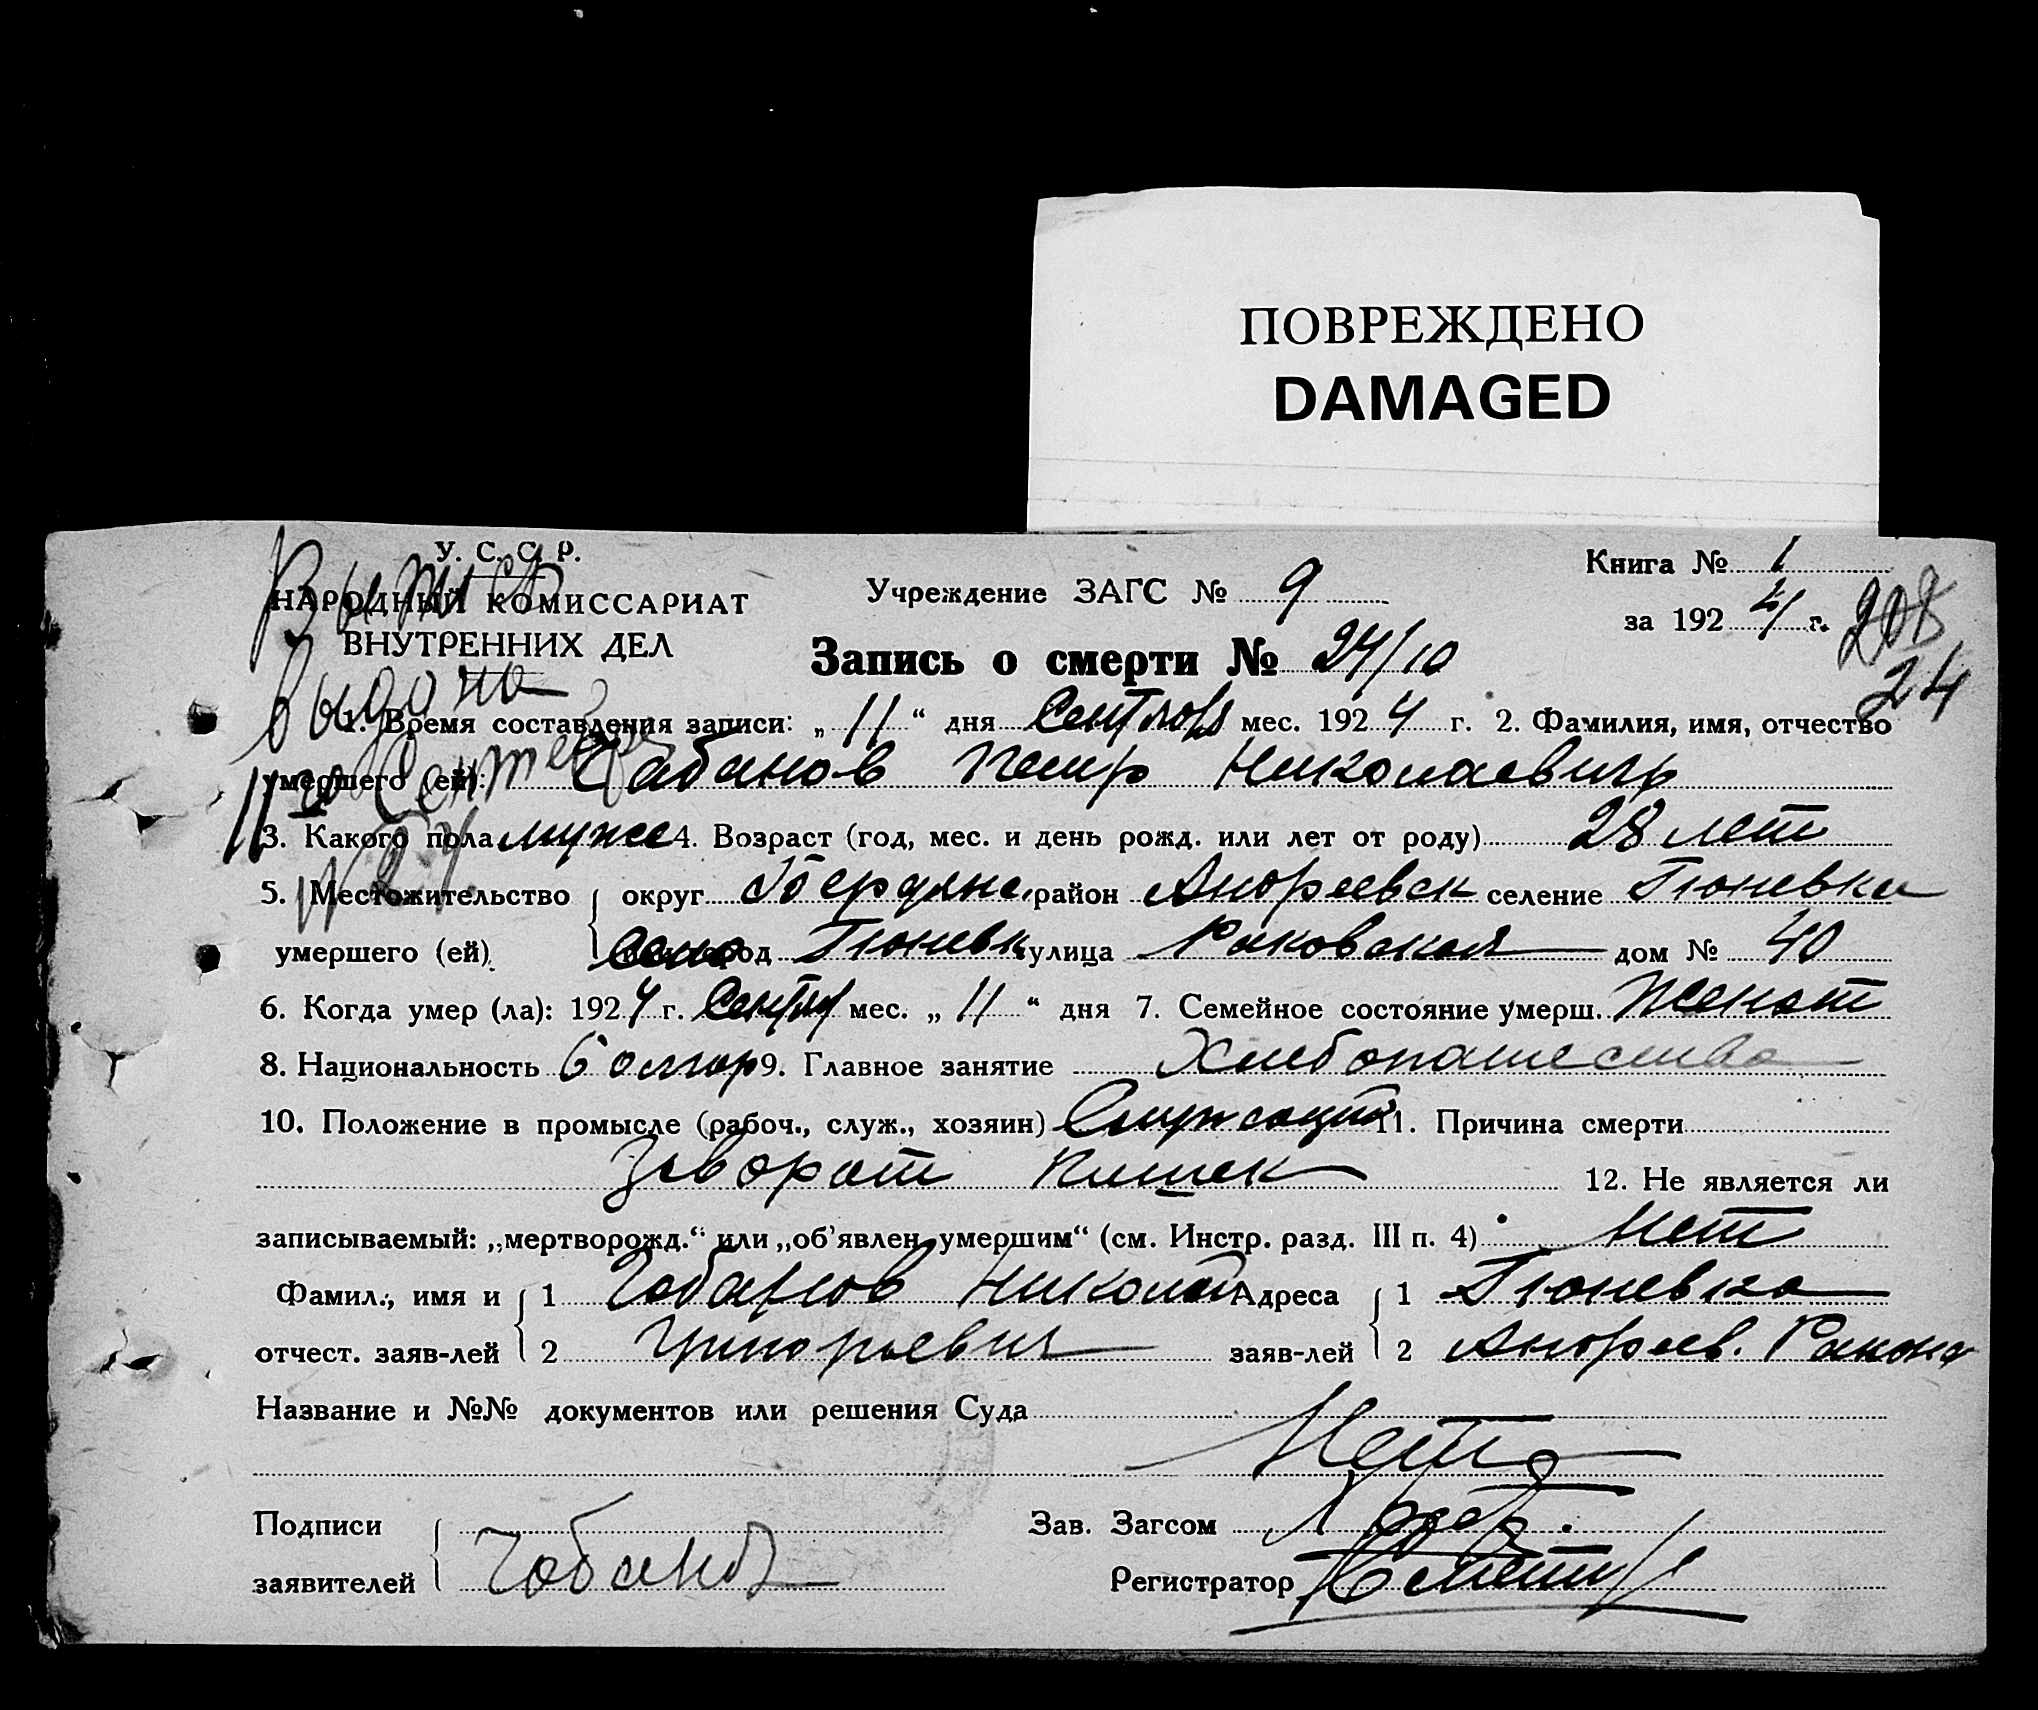 ПОВРЕЖДЕНО
DAMAGED
У. С. С. Р.
НАРОДНЫЙ КОМИССАРИАТ
ВНУТРЕННИХ ДЕЛ
Выпись
выдана
11го Сентября
Учреждение ЗАГС № 9
Книга № 1
за 1924 г.
208
24
Запись о смерти № 24/10
1. Время составления записи: „11“ дня Сентября мес. 1924 г. 2. Фамилия, имя, отчество
умершего (ей): Чабанов Петр Николаевичь
3. Какого пола муже 4. Возраст (год, мес. и день рожд. или лет от роду) 28 лет
5. Местожительство округ Бердянс. район Андреевск селение Гюневка
умершего (ей) село город Гюневк улица Раковская дом № 40
6. Когда умер (ла): 1924 г. Сентяб мес. „11“ дня 7. Семейное состояние умерш. Женат
8. Национальность болгар 9. Главное занятие Хлебопашество
10. Положение в промысле (рабоч., служ., хозяин) 11. Причина смерти
Заворот кишек 12. Не является ли
записываемый: „мертворожд.“ или „об'явлен умершим“ (см. Инстр. разд. III п. 4) Нет
Фамил., имя и 1 Чабанов Николай Адреса 1 Гюневка
отчест. заяв-лей 2 Григорьевич заяв-лей 2 Андреев. Района
Название и №№ документов или решения Суда
Нет
Подписи
заявителей Чабанов
Зав. Загсом
Регистратор